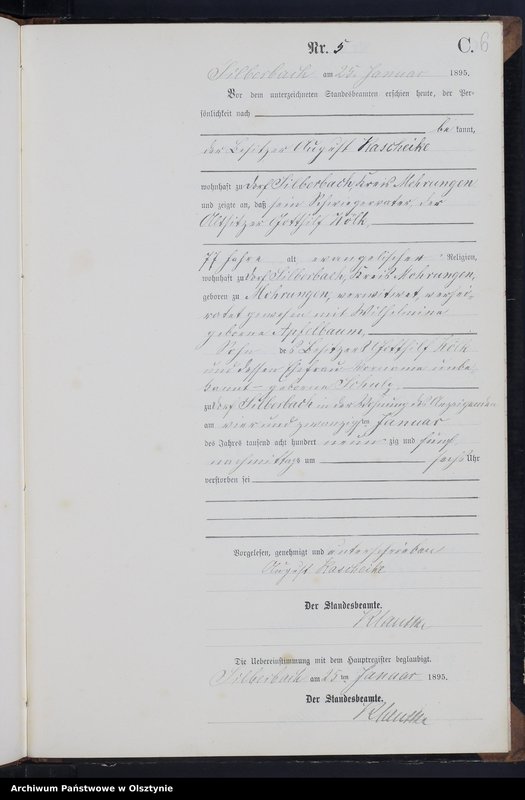 Nr. 5
C.
6
Silberbach am 25. Januar 1895.
Vor dem unterzeichneten Standesbeamten erschien heute, der Per-
sönlichkeit nach
be kannt,
der Besitzer August Kascheike
wohnhaft zu Dorf Silberbach, Kreis Mohrungen
und zeigte an, daß sein Schwiegervater, der
Altsitzer Gotthilf Kölk,
77 Jahre alt evangelischer Religion,
wohnhaft zu Dorf Silberbach, Kreis Mohrungen,
geboren zu Mohrungen, verwitwet, verhei-
ratet gewesen mit Wilhelmine
geborne Apfelbaum,
Sohn des Besitzers Gotthilf Kölk
und dessen Ehefrau Vorname unbe
kannt – geborne Schulz,
zu Dorf Silberbach in der Wohnung des Anzeigenden
am vier und zwanzigsten Januar
des Jahres tausend acht hundert neun zig und fünf
nachmittags um sechs Uhr
verstorben sei
Vorgelesen, genehmigt und unterschrieben
August Kascheike
Der Standesbeamte.
Die Uebereinstimmung mit dem Hauptregister beglaubigt.
Silberbach am 25ten Januar 1895.
Der Standesbeamte.
Archiwum Państwowe w Olsztynie